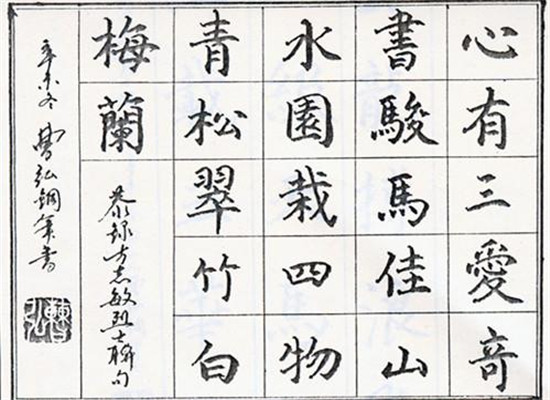 心有三愛奇
書駿馬佳山
水園栽四物
青松翠竹白
梅蘭
恭録方志敏烈士聯句
辛未冬 曹弘鋼筆書
曹弘